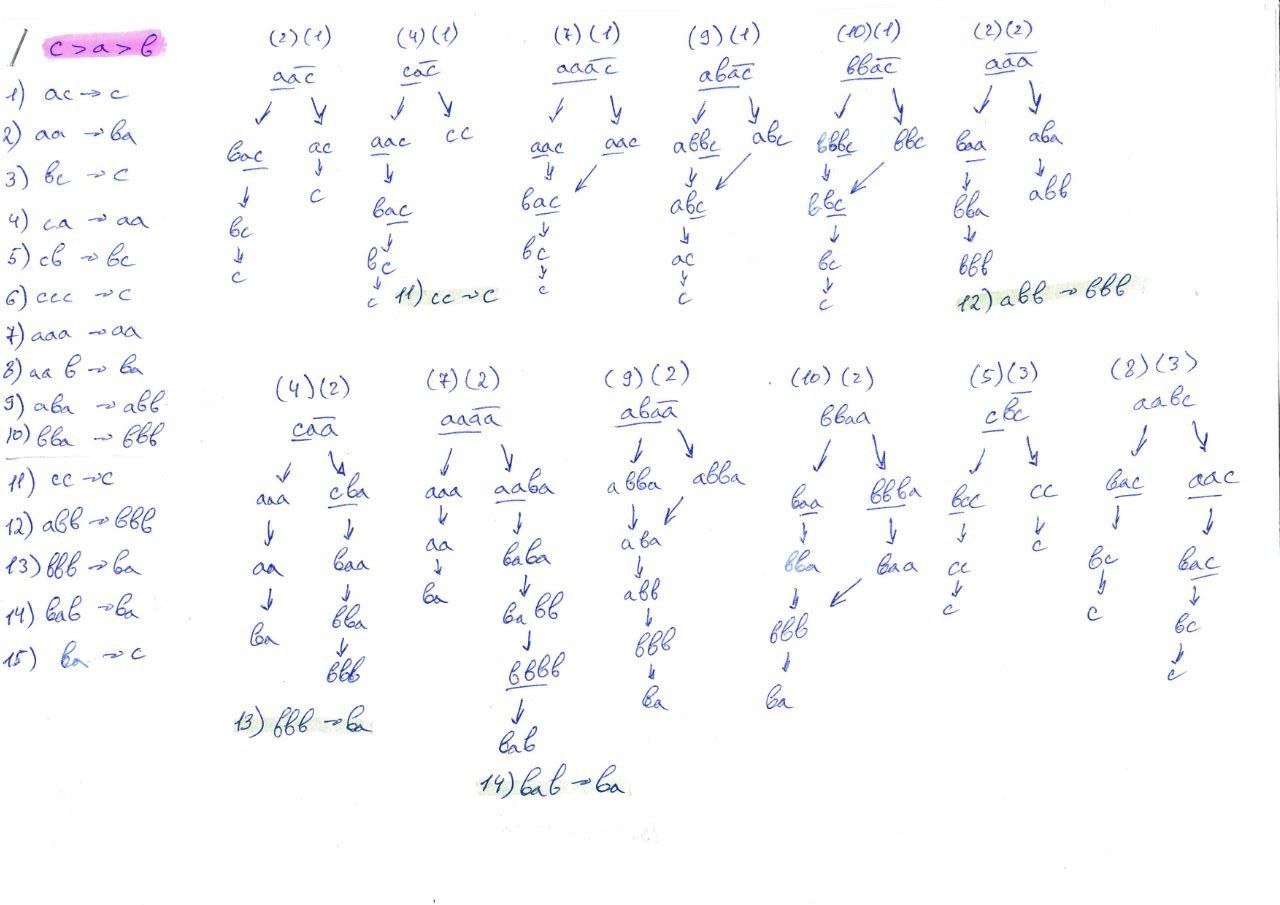 1
c > a > b
1) ac → c
2) aa → ba
3) bc → c
4) ca → aa
5) cb → bc
6) ccc → c
7) aaa → aa
8) aab → ba
9) aba → abb
10) bba → bbb
11) cc → c
12) abb → bbb
13) bbb → ba
14) bab → ba
15) ba → c
(2)(1)
aac
bac ac
bc c
c
(4)(1)
cac
aac cc
bac
bc
c
11) cc → c
(7)(1)
aaac
aac aac
bac
bc
c
(9)(1)
abac
abbc abc
abc
ac
c
(10)(1)
bbac
bbbc bbc
bbc
bc
c
(2)(2)
aaa
baa aba
bba abb
bbb
12) abb → bbb
(4)(2)
caa
aaa cba
aa baa
ba bba
bbb
13) bbb → ba
(7)(2)
aaaa
aaa aaba
aa baba
ba babb
bbbb
bab
14) bab → ba
(9)(2)
abaa
abba abba
aba
abb
bbb
ba
(10)(2)
bbaa
baa bbba
bba baa
bbb
ba
(5)(3)
cbc
bcc cc
cc c
c
(8)(3)
aabc
bac aac
bc bac
c bc
c